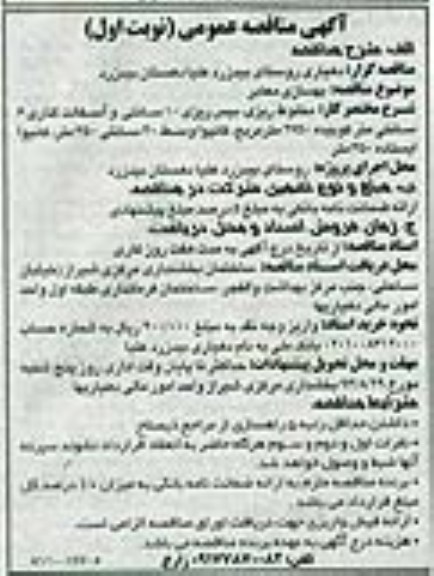 آگهی مناقصه عمومی (نوبت اول)
الف: شرح مناقصه
مناقصه گزار: دهیاری روستای بیدزرد علیا دهستان بیدزرد
موضوع مناقصه: بهسازی معابر
شرح مختصر کار: مخلوط ریزی بیس ریزی ۱۰ سانتی و آسفالت کاری ۶
سانتی متر کوبیده ۲۷۵۰ مترمربع، کانیوا وسط ۶۰ سانتی ۲۵۰ متر، کانیوا
ایستاده ۲۵۰ متر
محل اجرای پروژه: روستای بیدزرد علیا دهستان بیدزرد
ب: مبلغ و نوع تضمین شرکت در مناقصه
ارائه ضمانت نامه بانکی به مبلغ ۵ درصد مبلغ پیشنهادی
ج: زمان فروش اسناد و محل دریافت
اسناد مناقصه: از تاریخ درج آگهی به مدت هفت روز کاری
محل دریافت اسناد مناقصه: ساختمان بخشداری مرکزی شیراز (خیابان
ساحلی، جنب مرکز بهداشت والفجر، ساختمان فرمانداری طبقه اول واحد
امور مالی دهیاریها
نحوه خرید اسناد: واریز وجه نقد به مبلغ ریال به شماره حساب
بانک ملی به نام دهیاری بیدزرد علیا
مهلت و محل تحویل پیشنهادات: حداکثر تا پایان وقت اداری روز پنج شنبه
مورخ بخشداری مرکزی شیراز واحد امور مالی دهیاریها
شرایط مناقصه
• داشتن حداقل رتبه ۵ راهسازی از مراجع ذیصلاح
• نفرات اول و دوم و سوم هرگاه حاضر به انعقاد قرارداد نشوند سپرده
آنها ضبط و وصول خواهد شد.
• برنده مناقصه ملزم به ارائه ضمانت نامه بانکی به میزان ۱۰ درصد کل
مبلغ قرارداد می باشد.
• ارائه فیش واریزی جهت دریافت اوراق مناقصه الزامی است.
• هزینه درج آگهی به عهده برنده مناقصه می باشد.
تلفن: